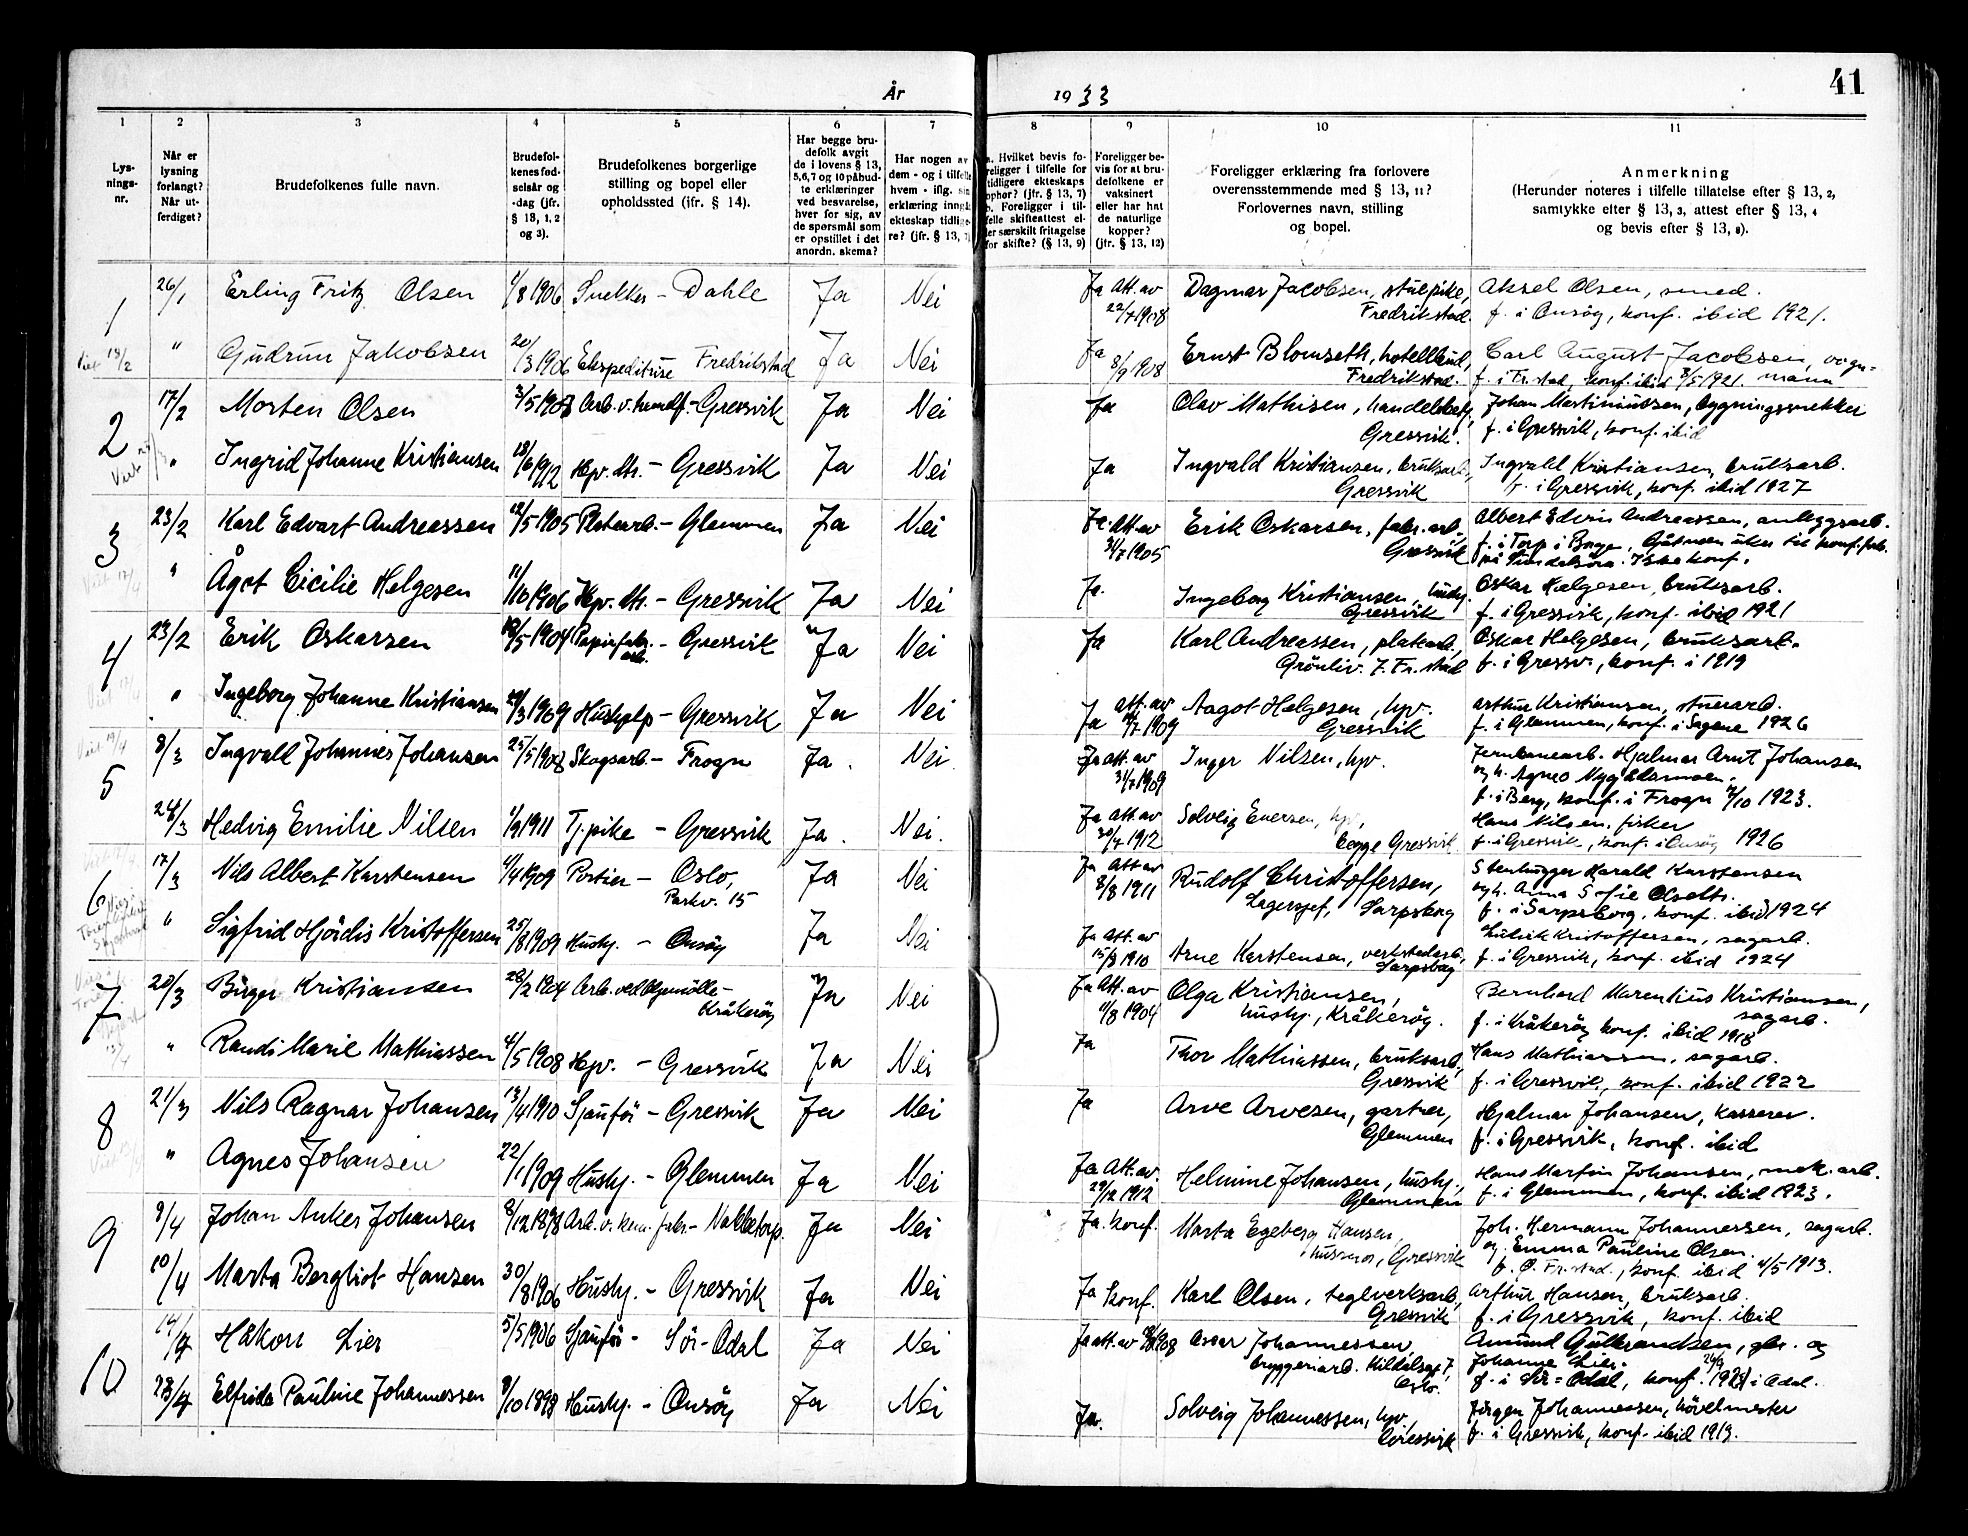 41
År 1933
1 2 3 4 5 6 7 8 9 10 11
Lys-
nings-
nr.
Når er
lysning
forlangt?
Når ut-
ferdiget?
Brudefolkenes fulle navn.
Brudefol-
kenes fød-
selsår og
-dag (jfr.
§ 13, 1, 2
og 3).
Brudefolkenes borgerlige
stilling og bopel eller
opholdssted (ifr. § 14).
Har begge bru-
defolk avgit
de i lovens § 13,
5,6,7 og 10 påbud-
te erklæringer
ved besvarelse,
hver for sig, av
de spørsmål som
er opstillet i det
anordn. skema?
Har nogen av
dem - og i tilfelle
hvem - iflg. sin
erklæring inngå
ekteskap tidlige-
re? (jfr. § 13,
a. Hvilket bevis fo-
religger i tilfelle for
tidligere ekteskaps
ophør? (jfr. § 13, 7)
b. Foreligger i til-
felle skifteattest el-
ler særskilt fritagelse
for skifte? (§ 13, 9)
Foreligger be-
vis for at bru-
defolkene er
vaksinert
eller har hat
de naturlige
kopper?
(jfr. § 13, 12)
Foreligger erklæring fra forlovere
overensstemmende med § 13, 11?
Forlovernes navn, stilling
og bopel.
Anmerkning
(Herunder noteres i tilfelle tillatelse efter § 13, 2,
samtykke efter § 13, 3, attest efter § 13, 4
og bevis efter § 13, 8).
1 26/1 Erling Fritz Olsen 1/8 1906 Snekker - Dahle Ja Nei Ja Att. av 22/7 1908 Dagmar Jacobsen, stuepike, Fredrikstad. Aksel Olsen, smed. f. i Onsøy, konf. ibid 1921.
Viet 18/2 " Gudrun Jakobsen 20/3 1906 Ekspeditrise Fredrikstad Ja Nei Ja 8/9 1908 Ernst Blomseth, hotellbud, Fredrikstad. Carl August Jacobsen, vogn-mann f. i Fr.stad, konf. ibid 8/5 1921.
2 17/2 Morten Olsen 3/5 1908 Arb. v. - Gressvik Ja Nei Ja Olav Mathisen, Gressvik. Johan Martiniussen, bygningssnekker f. i Gressvik, konf. ibid
Viet " Ingrid Johanne Kristiansen 18/6 1912 Hpv. dtr. - Gressvik Ja Nei Ja Ingvald Kristiansen, bruksarb., Gressvik Ingvald Kristiansen, bruksarb. f. i Gressvik, konf. ibid 1927
3 23/2 Karl Edvart Andreassen 12/5 1905 Platearb. - Glemmen Ja Nei Ja. Att. av 31/7 1905 Erik Oskarsen, fabr. arb., Gressvik Albert Edvin Andreassen, anleggsarb. f. i Torp i Borge.
Viet 17/4 " Ågot Cicilie Helgesen 11/10 1906 Hpv. dtr. - Gressvik Ja Nei Ja. Ingeborg Kristiansen, Gressvik Oskar Helgesen, bruksarb. f. i Gressvik, konf. ibid 1921
4 23/2 Erik Oskarsen 1904 Papirfabr. arb. - Gressvik Ja Nei Ja Karl Andreassen, platearb., Grønliv. 7. Fr.stad Oskar Helgesen, bruksarb. f. i Gressv., konf. i 1919
Viet 17/4 " Ingeborg Johanne Kristiansen 29/3 1909 Hushjelp - Gressvik Ja Nei Ja att. av 1909 Aagot Helgesen, hpv. Gressvik Arthur Kristiansen, stuearb. f. i Glemmen, konf. i Sagene 1926
5 8/3 Ingvald Johannes Johansen 25/5 1908 Skogsarb. - Frogn Ja. Nei. Ja att. av 31/7 1909 Inger Nilsen, hpv. Jernbanearb. Hjalmar Arnt Johansen og h. Agnes f. i Berg, konf. i Frogn 7/10 1923.
24/3 Hedvig Emilie Nilsen 1/9 1911 Tj.pike - Gressvik Ja. Nei. Ja att. av 30/7 1912 Solveig Enersen, hpv, begge Gressvik Hans Nilsen, fisker f. i Gressvik, konf. i Onsøy 1926
6 17/3 Nils Albert Karstensen 4/4 1909 Portier - Oslo, Parkv. 15 Ja Nei Ja Att av 8/8 1911 Rudolf Christoffersen, Lagersjef, Sarpsborg Stenhugger Harald Karstensen og h. Anna Sofie f. i Sarpsborg, konf. ibid 1924
" Sigfrid Hjørdis Kristoffersen 25/8 1909 Hushj. - Onsøy Ja Nei Ja Att. av 15/8 1910 Arne Karstensen, verkstedarb., Sarpsborg Ludvik Kristoffersen, sagarb. f. i Gressvik, konf. ibid 1924
7 20/3 Birger Kristiansen 28/2 1904 Arb. ved - Kråkerøy Ja Nei Ja Att. av 11/8 1904 Olga Kristiansen, hushj., Kråkerøy. Bernhard Marentius Kristiansen, sagarb. f. i Kråkerøy konf. ibid 1918
" Randi Marie Mathiassen 4/5 1908 Hpv. - Gressvik Ja Nei Ja Thor Mathiassen, bruksarb., Gressvik Hans Mathiassen, sagarb. f. i Gressvik, konf. ibid 1922
8 21/3 Nils Ragnar Johansen 13/4 1910 Sjauför - Gressvik Ja Nei Ja Arve Arvesen, gartner, Glemmen Hjalmar Johansen, kasserer. f. i Gressvik, konf. ibid
" Agnes Johansen 22/1 1909 Hushj. - Glemmen Ja Nei Ja Att. av. 29/12 1912 Helmine Johansen, hushj., Glemmen Hans Martin Johansen, mek. arb. f. i Glemmen, konf. ibid 1923.
9 8/4 Johan Anker Johansen 8/12 1898 Arb. v. kem. fabr. - Nabbetorp. Ja Nei Ja. konf. Marta Egeberg Hansen, husmor, Gressvik Joh. Hermann Johannessen, sagarb. og Emma Pauline Olsen. f. Ø. Fr.stad., konf. ibid 4/5 1913.
10/4 Marta Bergliot Hansen 30/8 1906 Hushj. - Gressvik Ja Nei Ja konf. Karl Olsen, teglverksarb., Gressvik Arthur Hansen, bruksarb. f. i Gressvik, konf. ibid
10 14/4 Håkon Lier 5/5 1906 Sjauför - Sör-Odal Ja Nei Ja att. av 1908 Oscar Johannessen, bryggeriarb. Oslo. Amund Gulbrandsen, gbr. og Johanne Lier. f. i Sör-Odal, konf. i Odal.
28/4 Elfrida Pauline Johannessen 9/10 1898 Hushj. - Onsøy Ja Nei Ja. Solveig Johannessen, hpv., Gressvik Jörgen Johannessen, hövelmester f. i Gressvik, konf. ibid 1913.